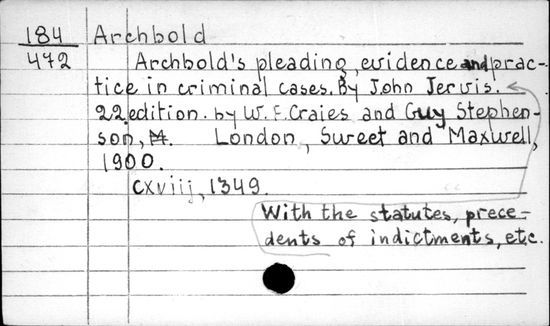 184 Archbold
472 Archbold's pleading, evidence and prac-
tice in criminal cases. By John Jervis.
22.edition. by W. F. Craies and Guy Stephen-
son, London, Sweet and Maxwell,
1900.
cxviij, 1349.
With the statutes, prece-
dents of indictments, etc.